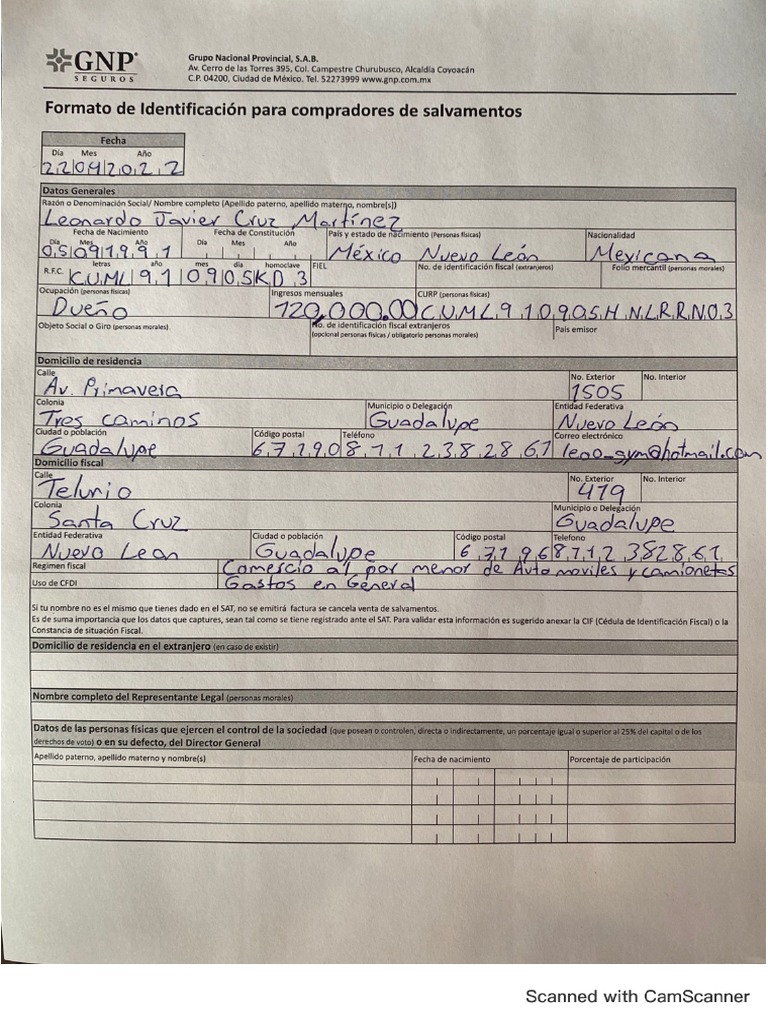 GNP
SEGUROS
Grupo Nacional Provincial, S.A.B.
Av. Cerro de las Torres 395, Col. Campestre Churubusco, Alcaldía Coyoacán
C.P. 04200, Ciudad de México. Tel. 52273999 www.gnp.com.mx
Formato de Identificación para compradores de salvamentos
Fecha
Día Mes Año
22 09 2022
Datos Generales
Razón o Denominación Social/ Nombre completo (Apellido paterno, apellido materno, nombre[s])
Leonardo Javier Cruz Martínez
Fecha de Nacimiento Fecha de Constitución País y estado de nacimiento (Personas físicas) Nacionalidad
Día Mes Año Día Mes Año
05 09 1991 México Nuevo León Mexicana
letras año mes día homoclave FIEL No. de identificación fiscal (extranjeros) Folio mercantil (personas morales)
R.F.C. CUML 91 09 05 KD3
Ocupación (personas físicas) Ingresos mensuales CURP (personas físicas)
Dueño 120,000.00 CUML910905HNLRRN03
Objeto Social o Giro (personas morales) No. de identificación fiscal extranjeros País emisor
(opcional personas físicas / obligatorio personas morales)
Domicilio de residencia
Calle No. Exterior No. Interior
Av. Primavera 1505
Colonia Municipio o Delegación Entidad Federativa
Tres caminos Guadalupe Nuevo León
Ciudad o población Código postal Teléfono Correo electrónico
Guadalupe 67190 8112382861 leoo_gym@hotmail.com
Domicilio fiscal
Calle No. Exterior No. Interior
Telurio 419
Colonia Municipio o Delegación
Santa Cruz Guadalupe
Entidad Federativa Ciudad o población Código postal Telefono
Nuevo Leon Guadalupe 67196 8112382861
Regimen fiscal Comercio al por menor de Automoviles y camionetas
Uso de CFDI Gastos en General
Si tu nombre no es el mismo que tienes dado en el SAT, no se emitirá factura se cancela venta de salvamentos.
Es de suma importancia que los datos que captures, sean tal como se tiene registrado ante el SAT. Para validar esta información es sugerido anexar la CIF (Cédula de Identificación Fiscal) o la
Constancia de situación Fiscal.
Domicilio de residencia en el extranjero (en caso de existir)
Nombre completo del Representante Legal (personas morales)
Datos de las personas físicas que ejercen el control de la sociedad (que posean o controlen, directa o indirectamente, un porcentaje igual o superior al 25% del capital o de los
derechos de voto) o en su defecto, del Director General
Apellido paterno, apellido materno y nombre(s) Fecha de nacimiento Porcentaje de participación
Scanned with CamScanner